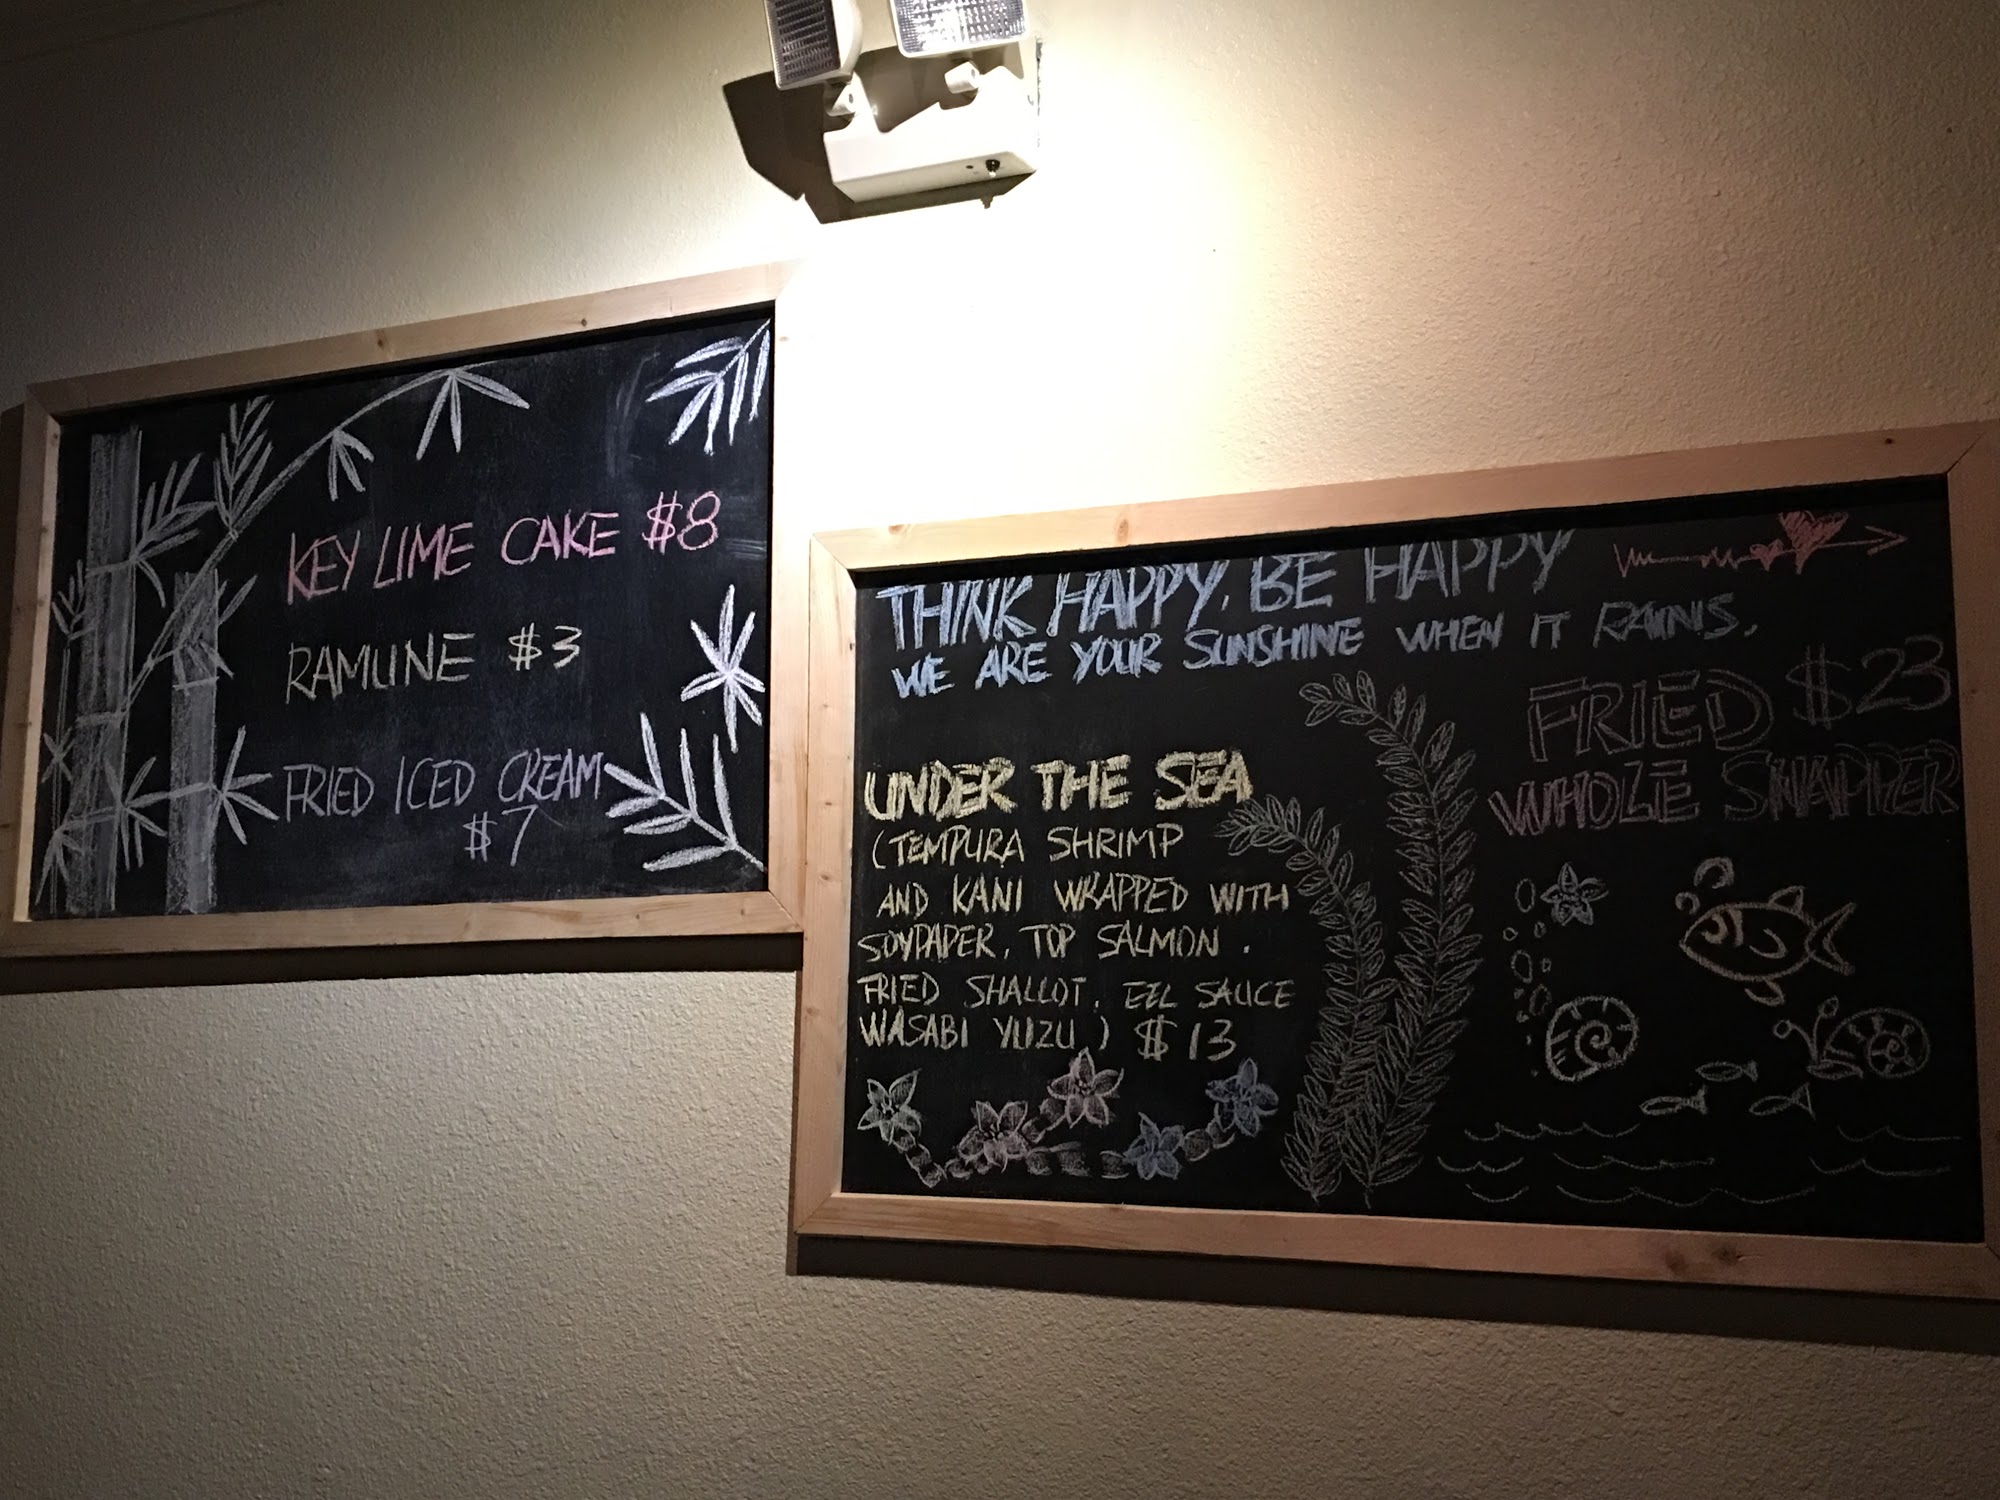 KEY LIME CAKE $8
RAMUNE $3
FRIED ICED CREAM
$7
THINK HAPPY, BE HAPPY
WE ARE YOUR SUNSHINE WHEN IT RAINS.
UNDER THE SEA
(TEMPURA SHRIMP
AND KANI WRAPPED WITH
SOYPAPER, TOP SALMON.
FRIED SHALLOT, EEL SAUCE
WASABI YUZU) $13
FRIED $23
WHOLE SNAPPER